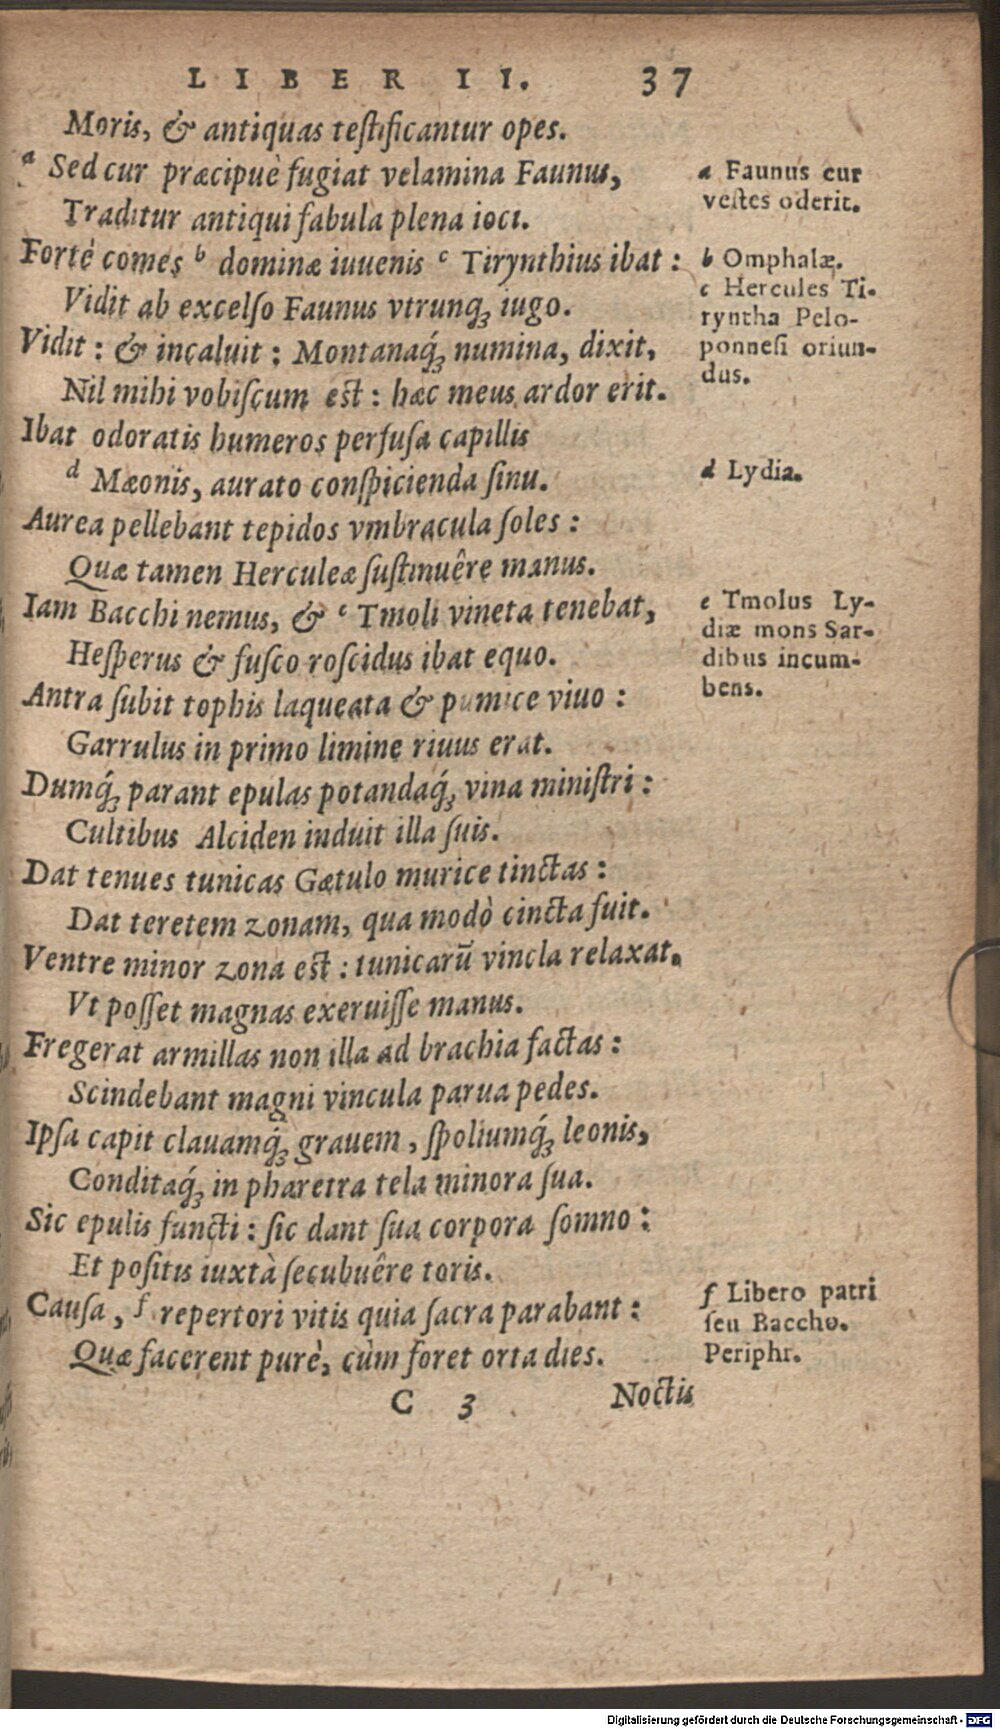 LIBER II. 37
Moris, & antiquas teſtificantur opes.
a Sed cur præcipuè fugiat velamina Faunus,
Traditur antiqui fabula plena ioci.
Fortè comes b dominæ iuuenis c Tirynthius ibat :
Vidit ab excelſo Faunus vtrunq́ꝫ iugo.
Vidit : & incaluit : Montanaq́ꝫ numina, dixit,
Nil mihi vobiſcum eſt : hæc meus ardor erit.
Ibat odoratis humeros perfuſa capillis
d Mæonis, aurato conſpicienda ſinu.
Aurea pellebant tepidos vmbracula ſoles :
Quæ tamen Herculeæ ſuſtinuêre manus.
Iam Bacchi nemus, & e Tmoli vineta tenebat,
Heſperus & fuſco roſcidus ibat equo.
Antra ſubit tophis laqueata & pumice viuo :
Garrulus in primo limine riuus erat.
Dumq́ꝫ parant epulas potandaq́ꝫ vina miniſtri :
Cultibus Alciden induit illa ſuis.
Dat tenues tunicas Gætulo murice tinctas :
Dat teretem zonam, qua modò cincta fuit.
Ventre minor zona eſt : tunicarū vincla relaxat.
Vt poſſet magnas exeruiſſe manus.
Fregerat armillas non illa ad brachia factas :
Scindebant magni vincula parua pedes.
Ipſa capit clauamq́ꝫ grauem, ſpoliumq́ꝫ leonis,
Conditaq́ꝫ in pharetra tela minora ſua.
Sic epulis functi : ſic dant ſua corpora ſomno :
Et poſitis iuxtà ſecubuêre toris.
Cauſa, f repertori vitis quia ſacra parabant :
Quæ facerent purè, cùm foret orta dies.
C 3 Noctis
a Faunus cur
veſtes oderit.
b Omphalæ.
c Hercules Ti-
ryntha Pelo-
ponneſi oriun-
dus.
d Lydia.
e Tmolus Ly-
diæ mons Sar-
dibus incum-
bens.
f Libero patri
ſeu Baccho.
Periphr.
Digitalisierung gefördert durch die Deutsche Forschungsgemeinschaft - DFG